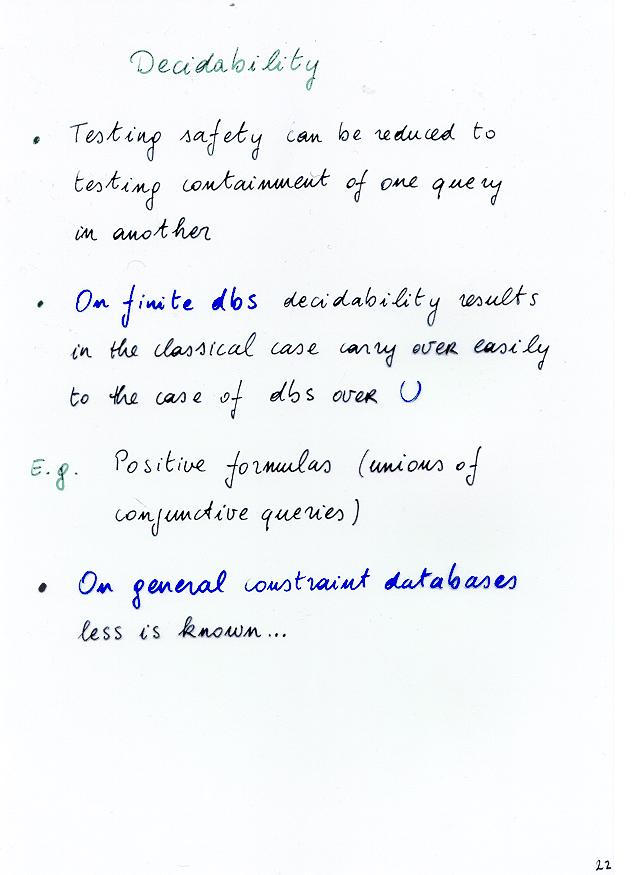 Decidability
• Testing safety can be reduced to
testing containment of one query
in another
• On finite dbs decidability results
in the classical case carry over easily
to the case of dbs over U
E.g. Positive formulas (unions of
conjunctive queries)
• On general constraint databases
less is known...
22